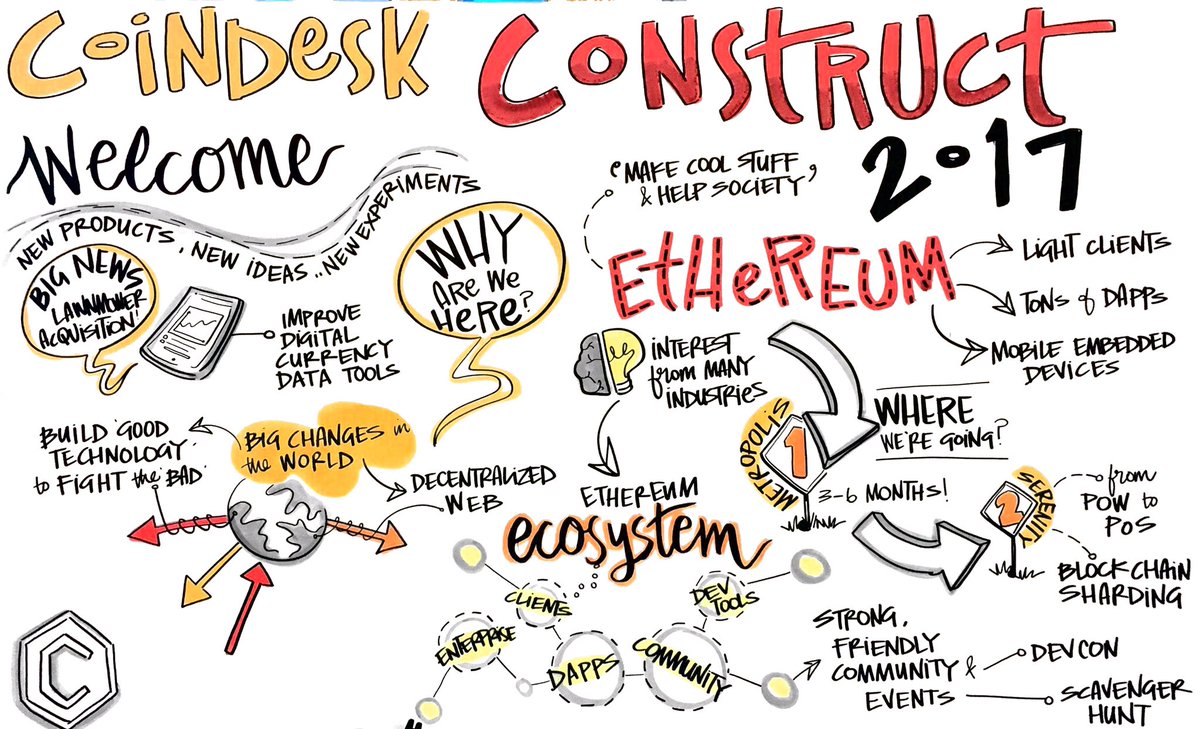 COINDESK CONSTRUCT
2017
Welcome
NEW PRODUCTS, NEW IDEAS.. NEW EXPERIMENTS
BIG NEWS
LAWNMOWER
ACQUISITION
IMPROVE
DIGITAL
CURRENCY
DATA TOOLS
WHY
ARE WE
HERE?
BUILD 'GOOD
TECHNOLOGY'
to FIGHT the 'BAD'
BIG CHANGES in
the WORLD
DECENTRALIZED
WEB
C
"MAKE COOL STUFF
& HELP SOCIETY"
ETHEREUM
LIGHT CLIENTS
TONS of DAPPS
MOBILE EMBEDDED
DEVICES
INTEREST
from MANY
INDUSTRIES
METROPOLIS
1
WHERE
WE'RE GOING?
3-6 MONTHS!
SERENITY
2
from
POW to
POS
BLOCKCHAIN
SHARDING
ETHEREUM
ecosystem
CLIENTS
ENTERPRISE
DAPPS
DEV
TOOLS
COMMUNITY
STRONG,
FRIENDLY
COMMUNITY &
EVENTS
DEVCON
SCAVENGER
HUNT